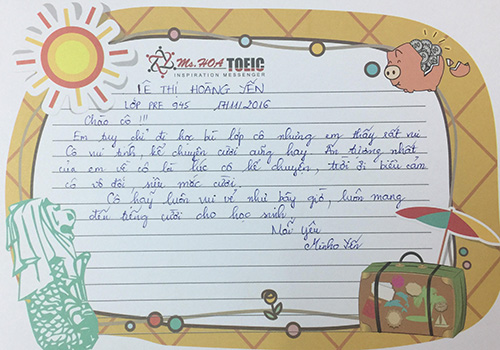 Ms.HOA TOEIC
INSPIRATION MESSENGER
LÊ THỊ HOÀNG YẾN
LỚP PRE 945 17/11/2016
Chào cô !!!
Em tuy chỉ đi học bù lớp cô nhưng em thấy rất vui
Cô vui tính, kể chuyện cười cũng hay. Ấn tượng nhất
của em về cô là lúc cô kể chuyện, trời ơi biểu cảm
cô vô đối siêu mắc cười.
Cô hãy luôn vui vẻ như bây giờ, luôn mang
đến tiếng cười cho học sinh.
Mãi yêu
Yến